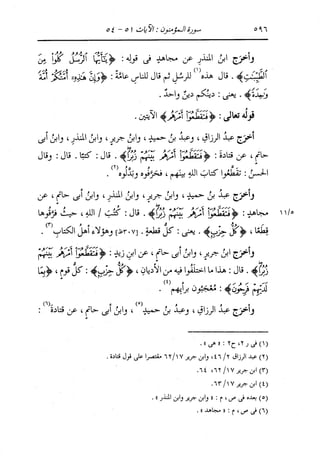 ٥٩٦ سورة المؤمنون : الآيات ٥١ - ٥٤
وأخرج ابنُ المنذرِ عن مجاهدٍ فى قوله : ﴿يَٰٓأَيُّهَا ٱلرُّسُلُ كُلُوا۟ مِنَ
ٱلطَّيِّبَٰتِ﴾ . قال : هذه(١) للرسلِ ثم قال للناسِ عامَّةً : ﴿وَإِنَّ هَٰذِهِۦٓ أُمَّتُكُمْ أُمَّةً
وَٰحِدَةً﴾ . يعنى : دينُكم دينٌ واحدٌ .
قولُه تعالى : ﴿فَتَقَطَّعُوٓا۟ أَمْرَهُم﴾ الآيتين .
أخرَج عبدُ الرزاقِ ، وعبدُ بنُ حميدٍ ، وابنُ جريرٍ ، وابنُ المنذرِ ، وابنُ أبى
حاتمٍ ، عن قتادةَ : ﴿فَتَقَطَّعُوٓا۟ أَمْرَهُم بَيْنَهُمْ زُبُرًا﴾ . قال : كتبًا . قال : وقال
الحسنُ : تقطَّعوا كتابَ اللهِ بينَهم ، فحرَّفوه وبدَّلوه(٢) .
وأخرج عبدُ بنُ حميدٍ ، وابنُ جريرٍ ، وابنُ المنذرِ ، وابنُ أبى حاتمٍ ، عن
١١/٥ مجاهدٍ : ﴿فَتَقَطَّعُوٓا۟ أَمْرَهُم بَيْنَهُمْ زُبُرًا﴾ . قال : كُتُبُ / اللهِ ، حيثُ فرَّقوها
قِطَعًا ، ﴿كُلُّ حِزْبٍ﴾ . يعنى : كلُّ قطعةٍ . [٣٠٧ظ] وهؤلاء أهلُ الكتابِ(٣) .
وأخرج ابنُ جريرٍ ، وابنُ أبى حاتمٍ ، عن ابنِ زيدٍ : ﴿فَتَقَطَّعُوٓا۟ أَمْرَهُم بَيْنَهُمْ
زُبُرًا﴾ . قال : هذا ما اختلفوا فيه من الأديانِ ، ﴿كُلُّ حِزْبٍ﴾ : كلُّ قومٍ ، ﴿بِمَا
لَدَيْهِمْ فَرِحُونَ﴾ : مُعجَبون برأيِهم(٤) .
وأخرج عبدُ الرزاقِ ، وعبدُ بنُ حميدٍ(٥) ، وابنُ أبى حاتمٍ ، عن قتادةَ(٦) :
(١) فى ر٢ ، ح٢ : « هى » .
(٢) عبد الرزاق ٤٦/٢ ، وابن جرير ٦٢/١٧ مقتصرا على قول قتادة .
(٣) ابن جرير ٦٢/١٧ ، ٦٤ .
(٤) ابن جرير ٦٣/١٧ .
(٥) بعده فى ص ، م : « وابن جرير وابن المنذر » .
(٦) فى ص ، م : « مجاهد » .